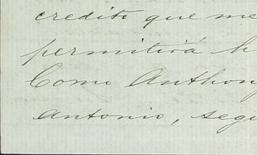 credito que me
permitirá h
Como Anthon
Antonio, segu